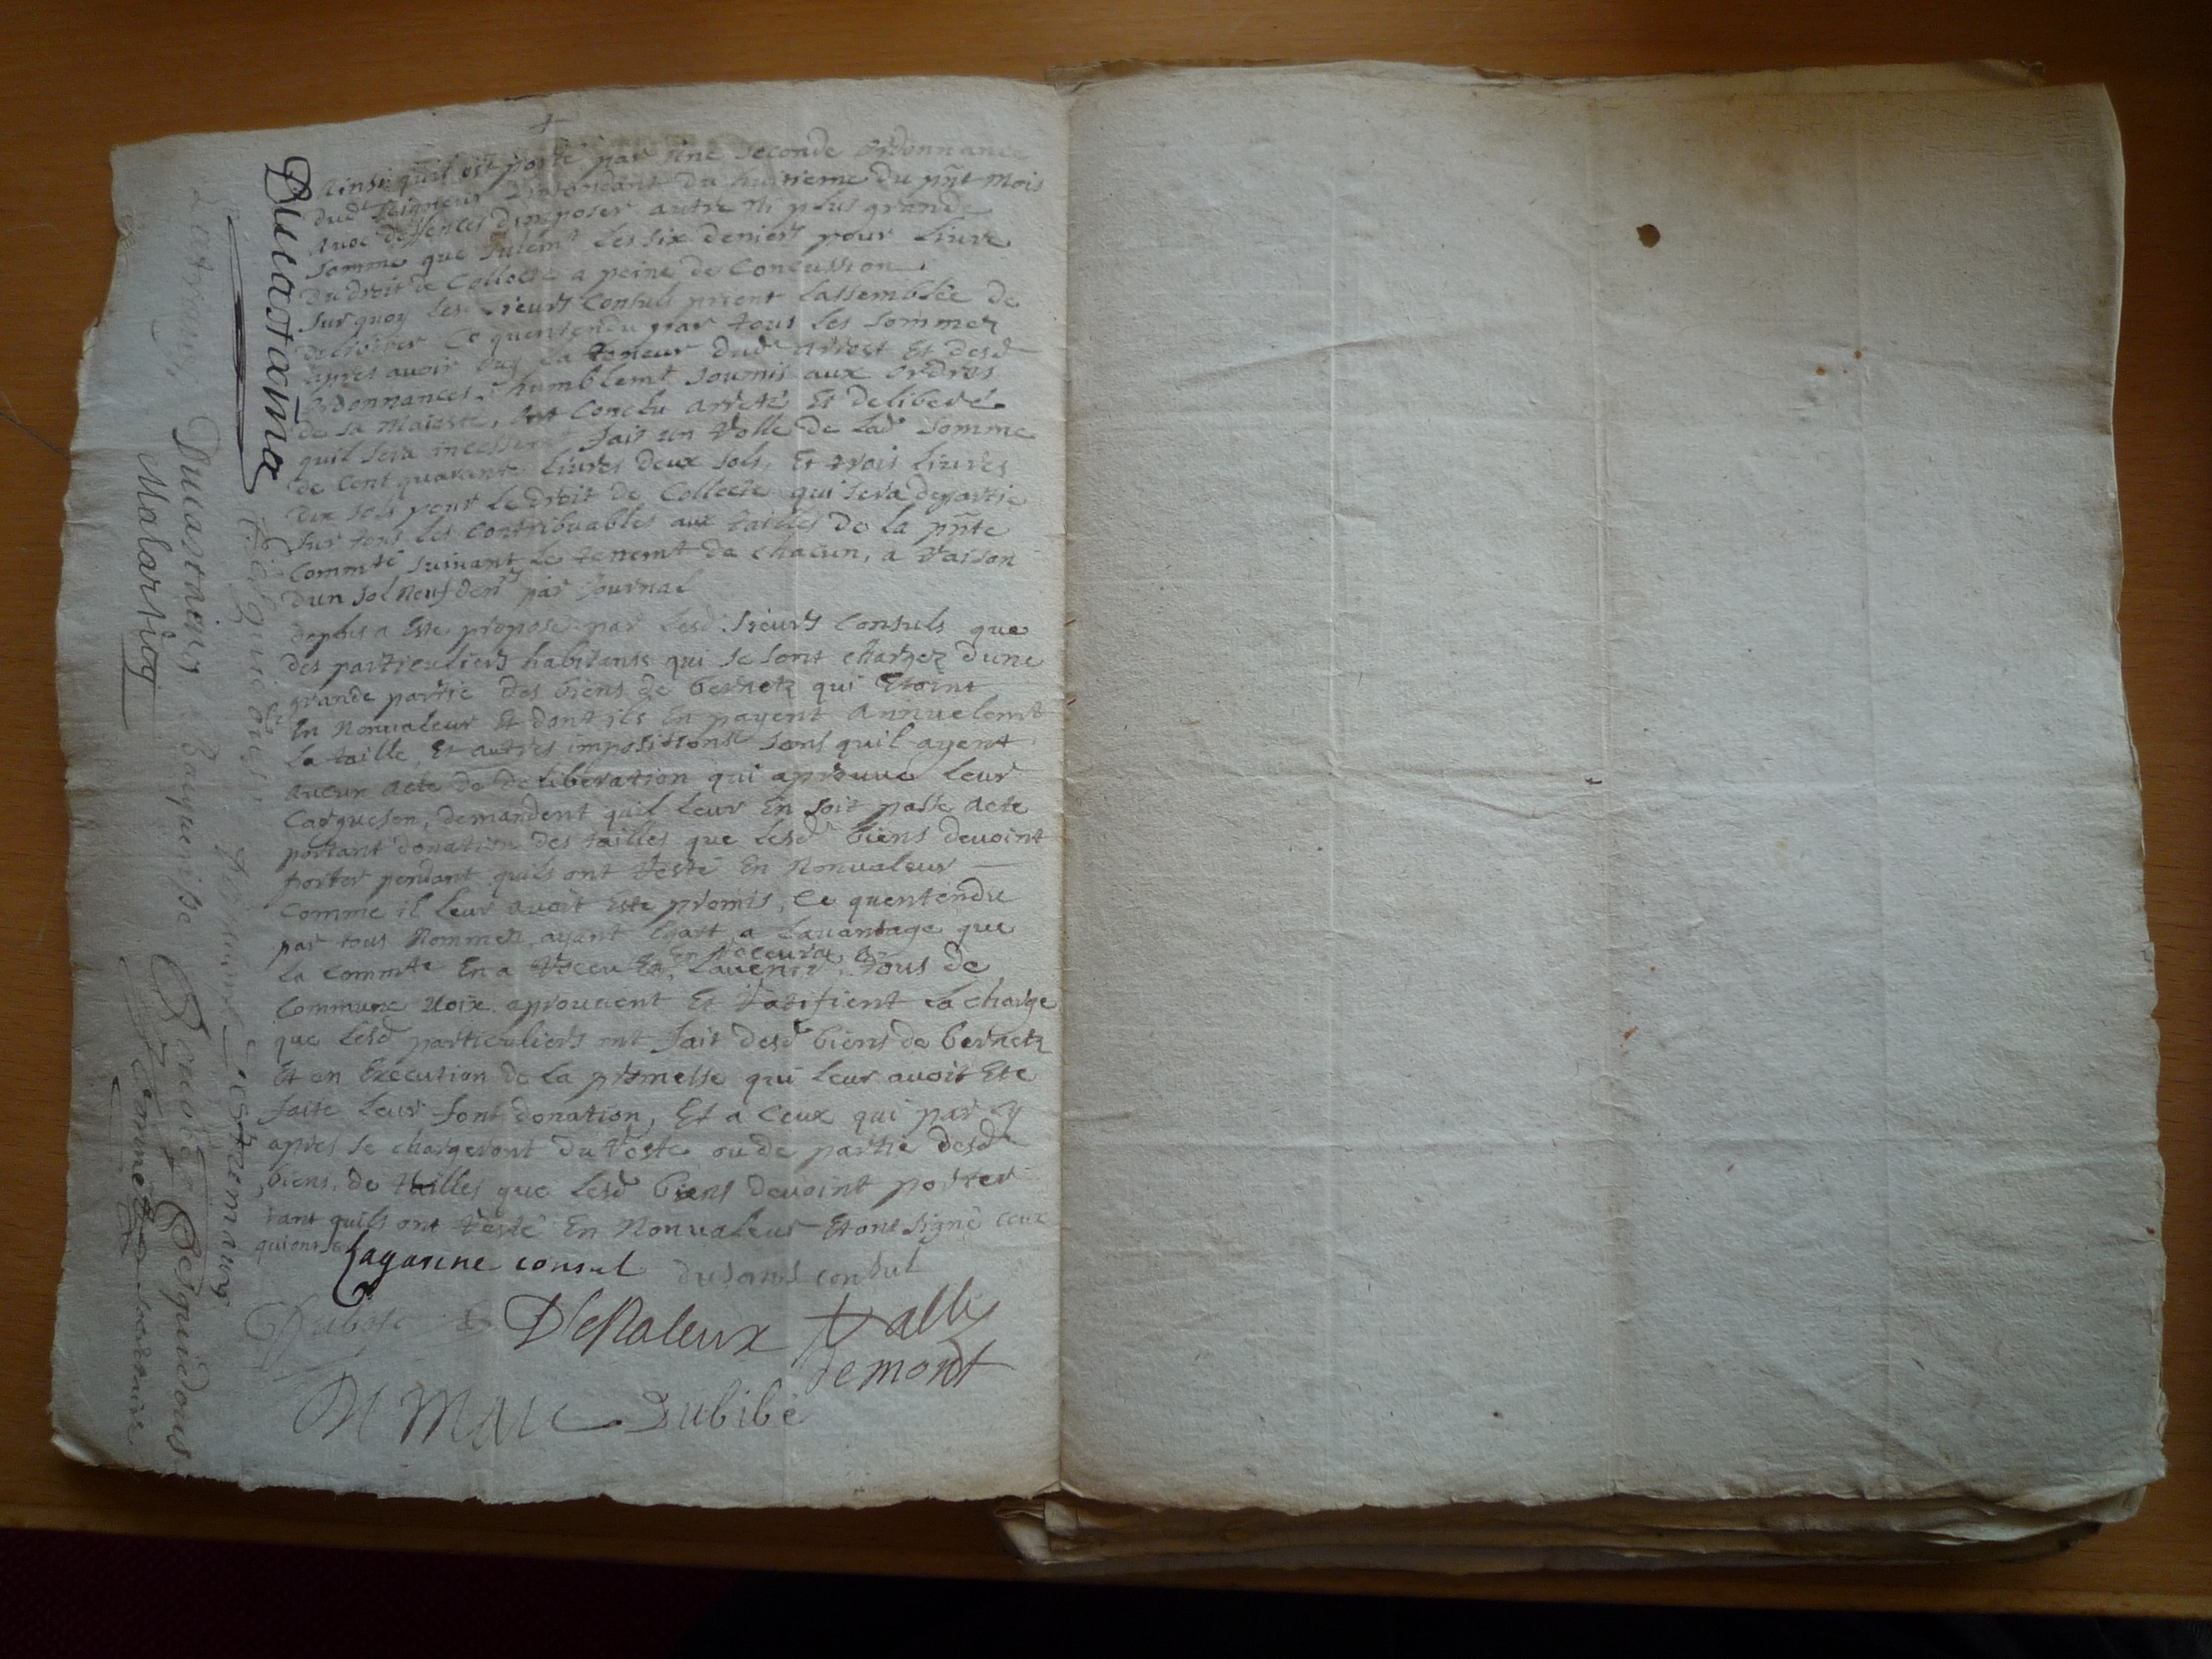 Ainsi quil est porté par une seconde ordonnance
dud Seigneur Intendant du huitieme du pñt mois
avec deffences dimposer autre ni plus grande
somme que sulemt les six deniers pour livre
du droit de Collecte a peine de Concussion
Surquoy les Sieurs Consuls prient lassemblée de
deliberer Ce quentendu par tous les sommez
apres avoir ouy la teneur dud arrest Et desd
ordonnances, humblemt soumis aux ordres
de sa Maiesté, ont Conclu arreté Et deliberé
quil sera incessemt fait un Rolle de lad somme
de Cent quarante livres deux sols, Et trois livres
dix sols pour le droit de Collecte qui sera departie
sur tous les Contribuables aux tailles de la pñte
Commté suivant le tenemt de chacun, a raison
dun sol neuf denrs par Journal
deplus a Esté proposé par lesd. Sieurs Consuls que
des particuliers habitants qui se sont chargez dune
grande partie des biens de bernetz qui Etoint
En Nonvaleur Et dont ils En payent Annuelemt
la taille Et autres impositions sans quil ayent
aucun acte de deliberation qui aprouve leur
demandent quil leur En soit passé acte
portant donation des tailles que lesd biens devoint
porter pendant quils ont resté En Nonvaleur
Comme il leur avoit Esté promis, Ce quentendu
par tous Nommez ayant Egart a lavantage que
la Commté En a Receu Et En Recevra a lavenir, tous de
Commune Voix aprouvent Et Ratifient la charge
que lesd particuliers ont fait desd biens de bernetz
Et en Execution de la promesse qui leur avoit Eté
faite leur font donation, Et a Ceux qui par cy
apres se chargeront du reste ou de partie desd
biens, de tailles que lesd biens devoint porter
tant quils ont resté En Nonvaleur Et ont signé ceux
qui ont
Lagarene consul dusans consul
Valle
Demont
Dubibe
Ducastaina
Ducastaing
Malartog
Desquidous